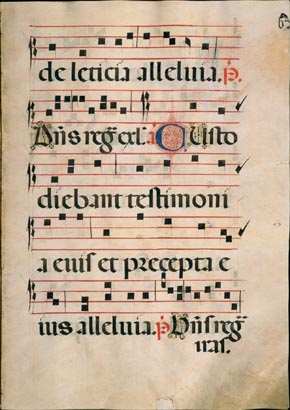 de leticia alleluia. p̄.
Dn̄s reḡ ex̄l. a Custo
diebant testimoni
a eius et precepta e
ius alleluia. p̄ Dn̄s reḡ